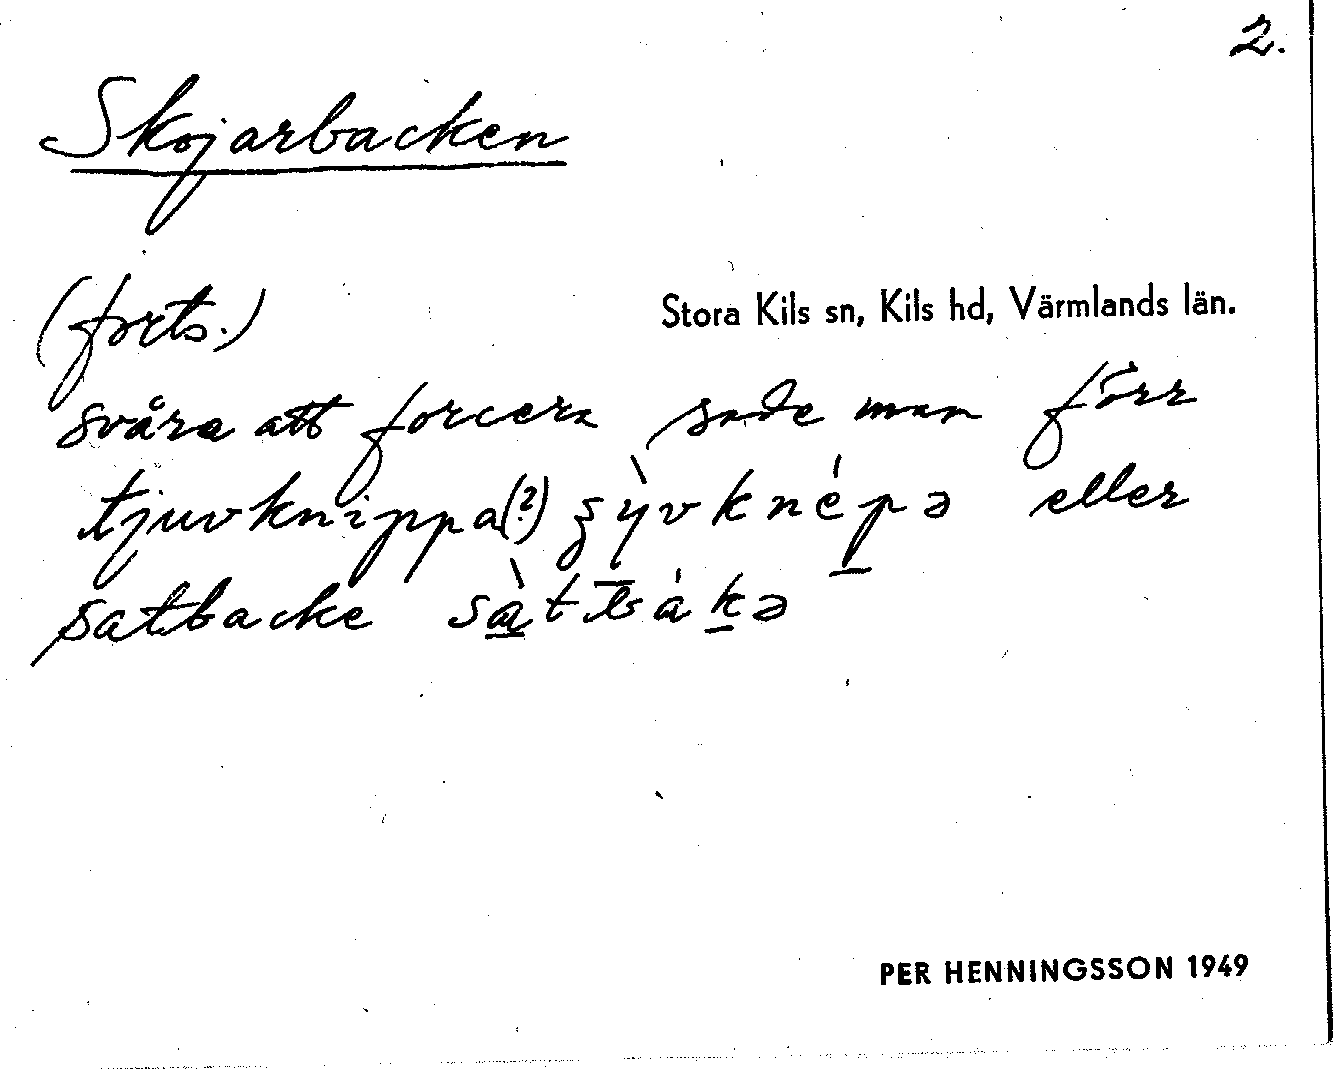 2.
Skojarbacken
(forts.)
Stora Kils sn, Kils hd, Värmlands län.
svåra att forcera sade man förr
tjuvknippa(?) eller
satbacke
PER HENNINGSSON 1949